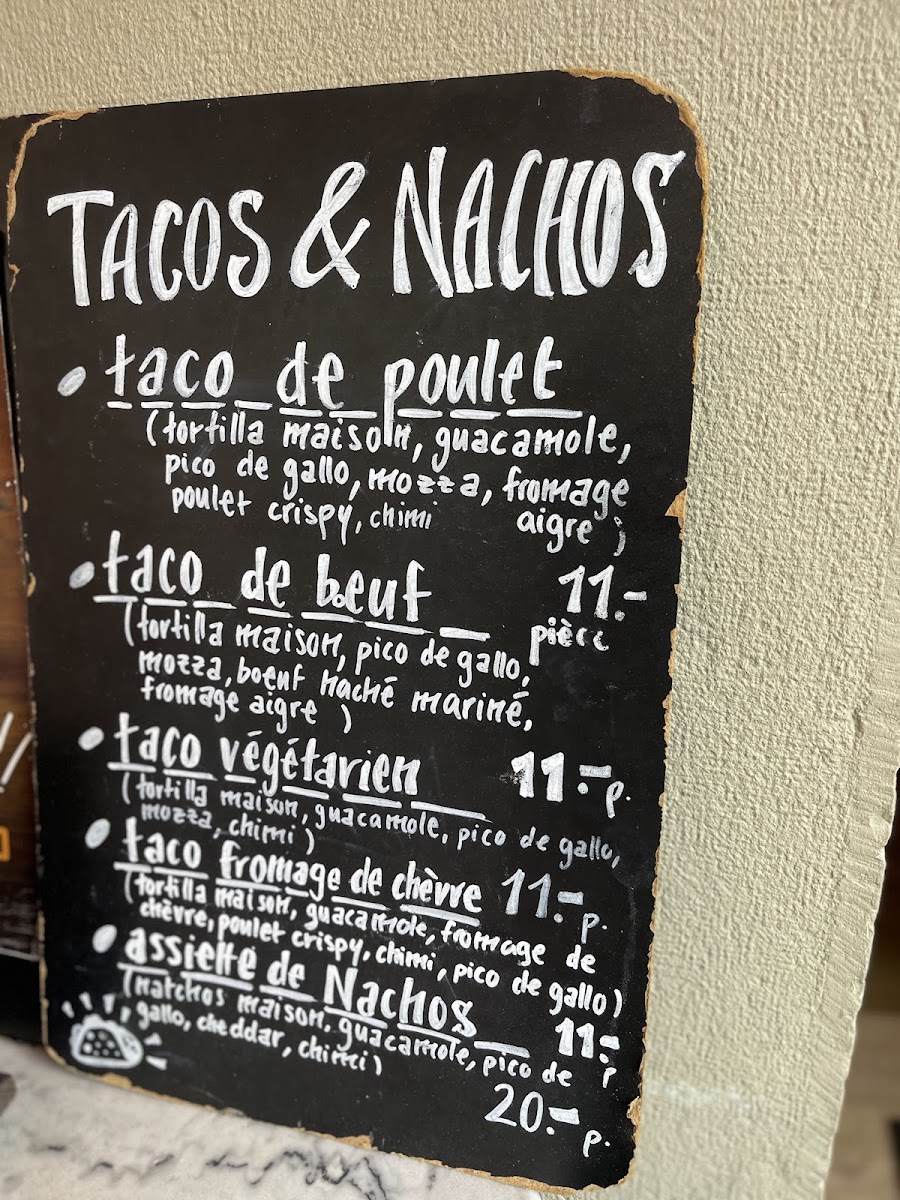 TACOS & NACHOS
• taco de poulet
(tortilla maison, guacamole,
pico de gallo, mozza, fromage
poulet crispy, chimi aigre)
• taco de bœuf 11.-
pièce
(tortilla maison, pico de gallo,
mozza, boeuf haché mariné,
fromage aigre)
• taco végétarien 11.- p.
(tortilla maison, guacamole, pico de gallo,
mozza, chimi)
• taco fromage de chèvre 11.- p.
(tortilla maison, guacamole, fromage de
chèvre, poulet crispy, chimi, pico de gallo)
• assiette de Nachos 11.-
p
(Natchos maison, guacamole, pico de
gallo, cheddar, chimi)
20.- p.